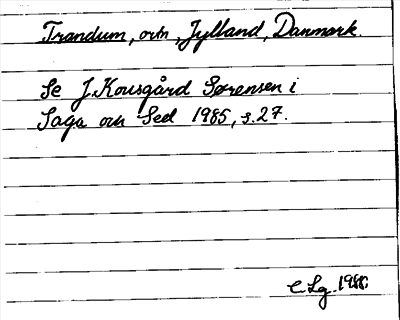 Trandum, ortn, Jylland, Danmark.
Se J. Kousgård Sørensen i
Saga och Sed 1985, s. 27.
C. Lg. 1988.